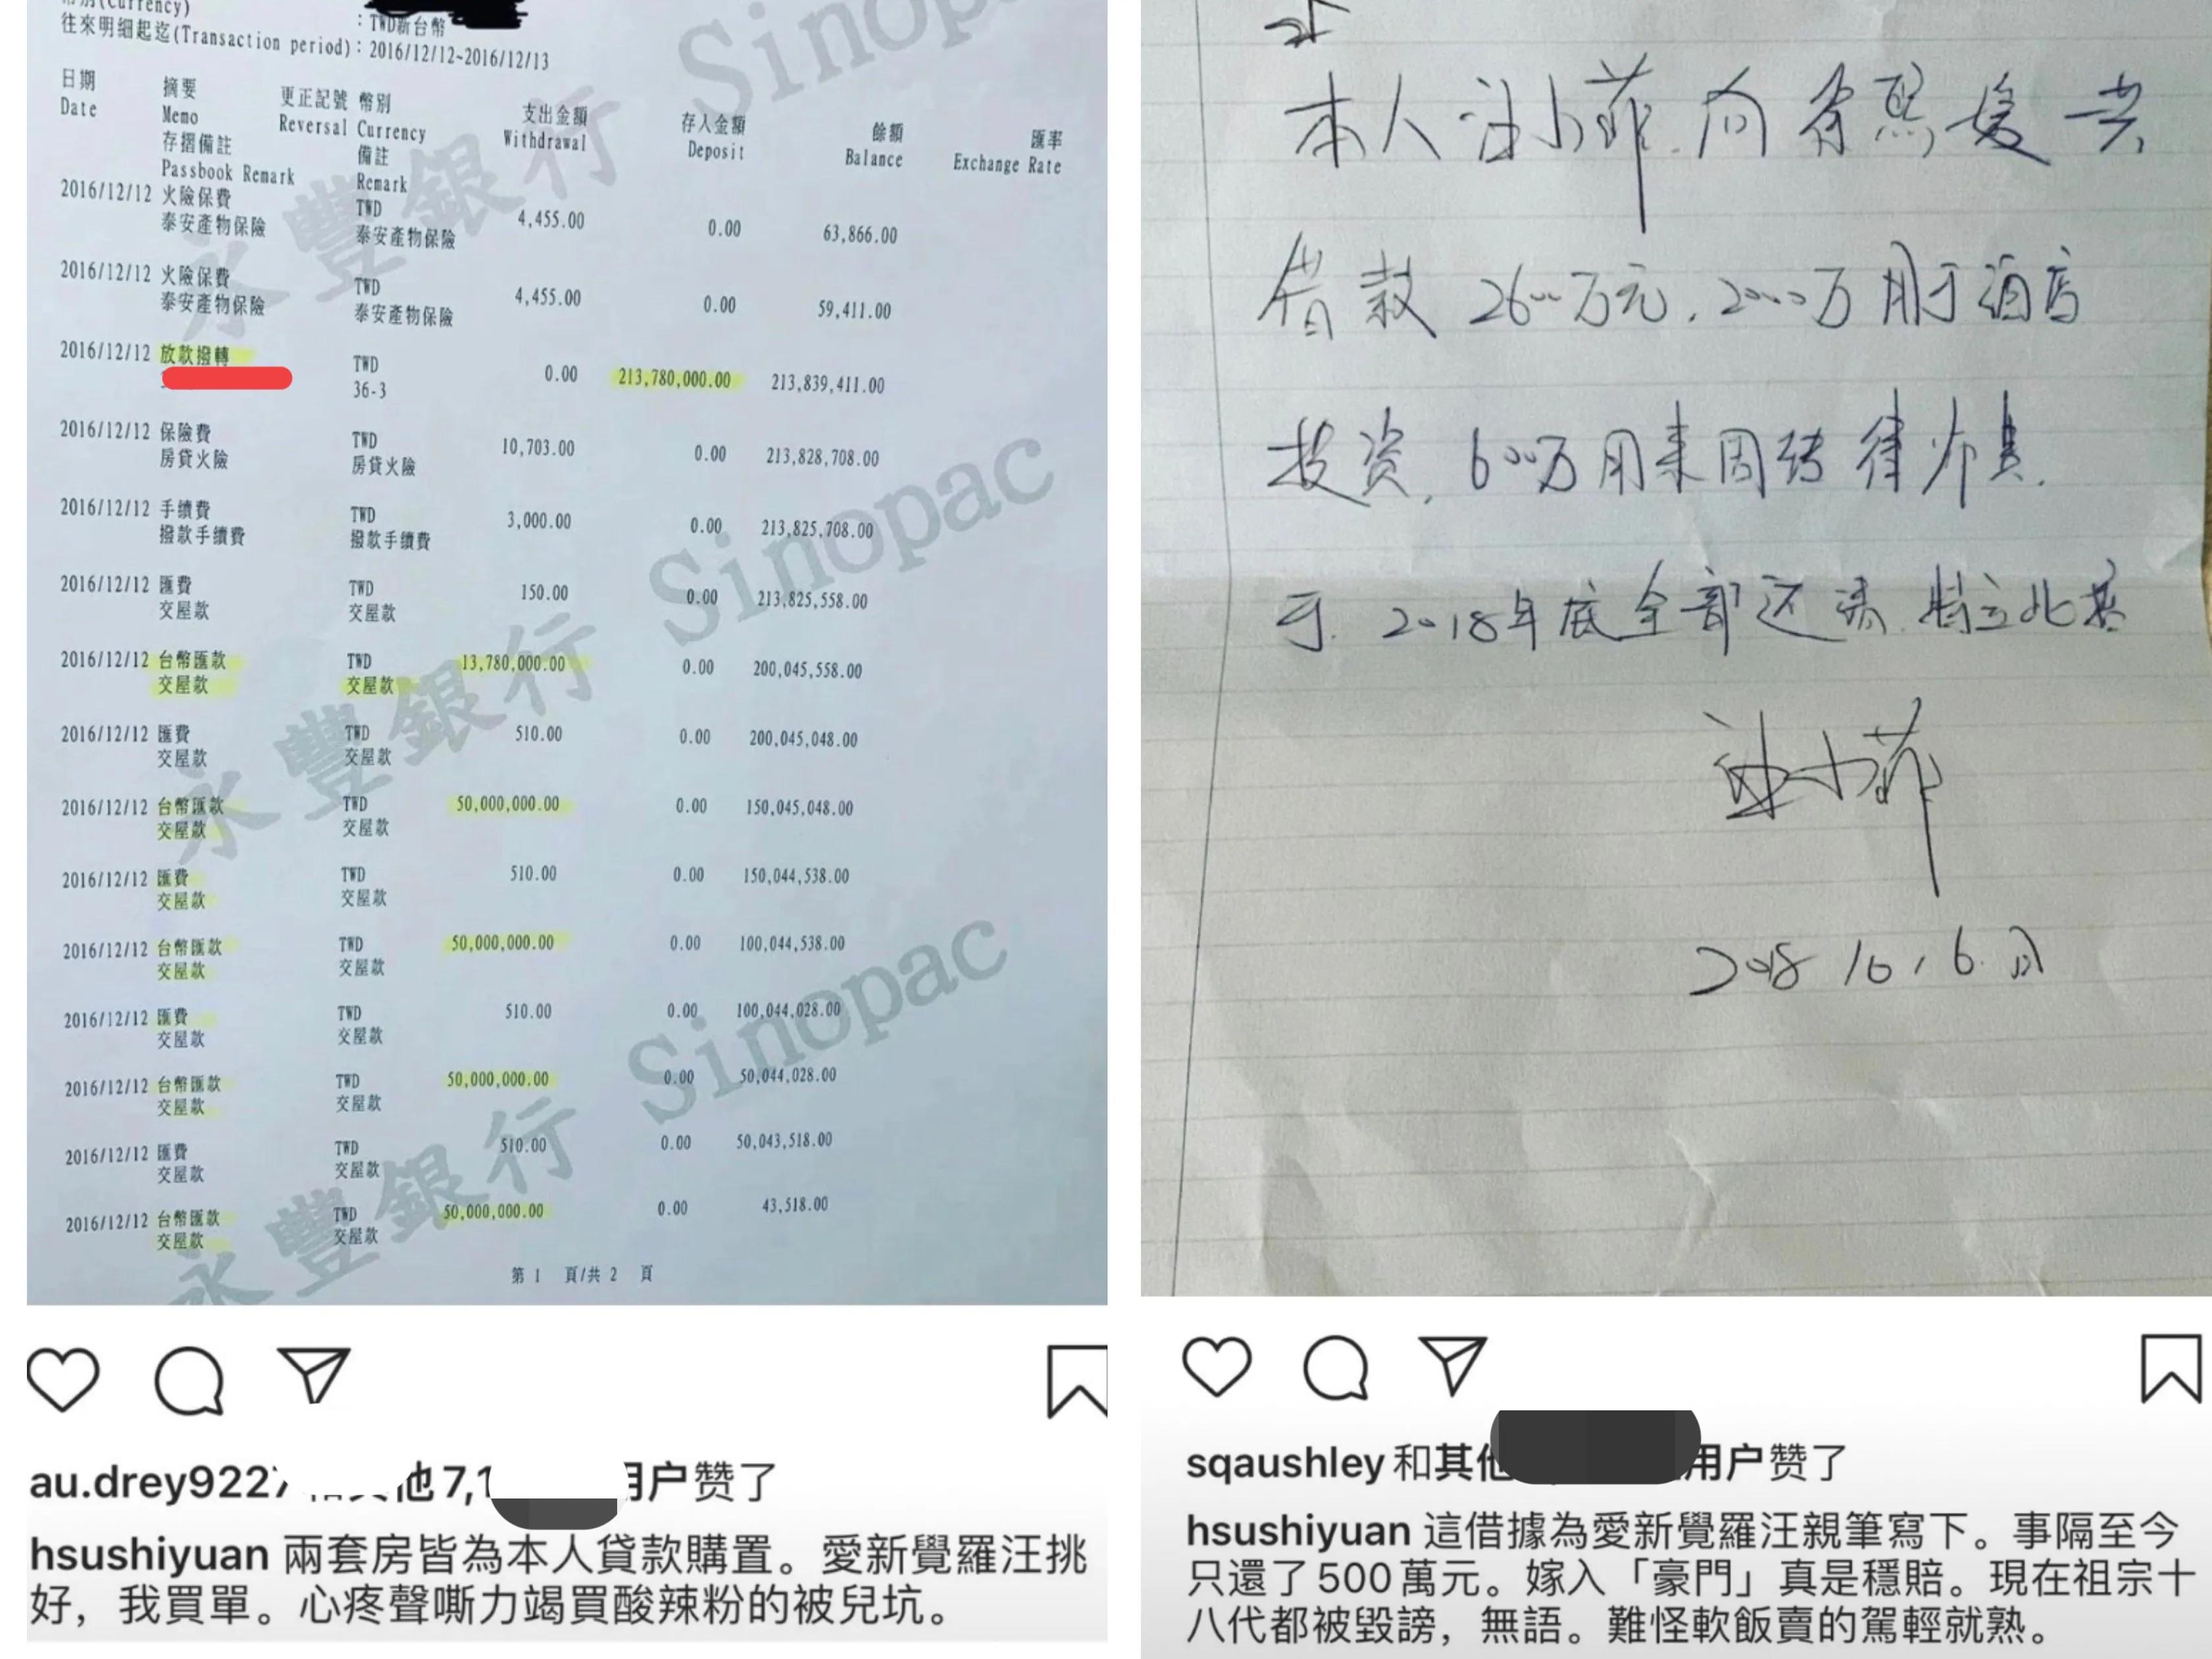 幣別(Currency)
：TWD新台幣
往來明細起迄(Transaction period)：2016/12/12~2016/12/13
日期 摘要 更正記號 幣別 支出金額 存入金額 餘額 匯率
Date Memo Reversal Currency Withdrawal Deposit Balance Exchange Rate
存摺備註 備註
Passbook Remark Remark
2016/12/12 火險保費 TWD 4,455.00 0.00 63,866.00
泰安產物保險 泰安產物保險
2016/12/12 火險保費 TWD 4,455.00 0.00 59,411.00
泰安產物保險 泰安產物保險
2016/12/12 放款撥轉 TWD 0.00 213,780,000.00 213,839,411.00
36-3
2016/12/12 保險費 TWD 10,703.00 0.00 213,828,708.00
房貸火險 房貸火險
2016/12/12 手續費 TWD 3,000.00 0.00 213,825,708.00
撥款手續費 撥款手續費
2016/12/12 匯費 TWD 150.00 0.00 213,825,558.00
交屋款 交屋款
2016/12/12 台幣匯款 TWD 13,780,000.00 0.00 200,045,558.00
交屋款 交屋款
2016/12/12 匯費 TWD 510.00 0.00 200,045,048.00
交屋款 交屋款
2016/12/12 台幣匯款 TWD 50,000,000.00 0.00 150,045,048.00
交屋款 交屋款
2016/12/12 匯費 TWD 510.00 0.00 150,044,538.00
交屋款 交屋款
2016/12/12 台幣匯款 TWD 50,000,000.00 0.00 100,044,538.00
交屋款 交屋款
2016/12/12 匯費 TWD 510.00 0.00 100,044,028.00
交屋款 交屋款
2016/12/12 台幣匯款 TWD 50,000,000.00 0.00 50,044,028.00
交屋款 交屋款
2016/12/12 匯費 TWD 510.00 0.00 50,043,518.00
交屋款 交屋款
2016/12/12 台幣匯款 TWD 50,000,000.00 0.00 43,518.00
交屋款 交屋款
第 1 頁/共 2 頁
永豐銀行 Sinopac
永豐銀行 Sinopac
永豐銀行 Sinopac
au.drey922 他 7,1 用户赞了
hsushiyuan 兩套房皆為本人貸款購置。愛新覺羅汪挑
好，我買單。心疼聲嘶力竭買酸辣粉的被兒坑。
本人汪小菲.向徐熙媛共
借款 2600万元.2000万用于酒店
投资.600万用来周转律师费.
于.2018年底全部还清.特立此据
汪小菲
2018 10,6.
sqaushley 和其他 用户赞了
hsushiyuan 這借據為愛新覺羅汪親筆寫下。事隔至今
只還了500萬元。嫁入「豪門」真是穩賠。現在祖宗十
八代都被毀謗，無語。難怪軟飯賣的駕輕就熟。